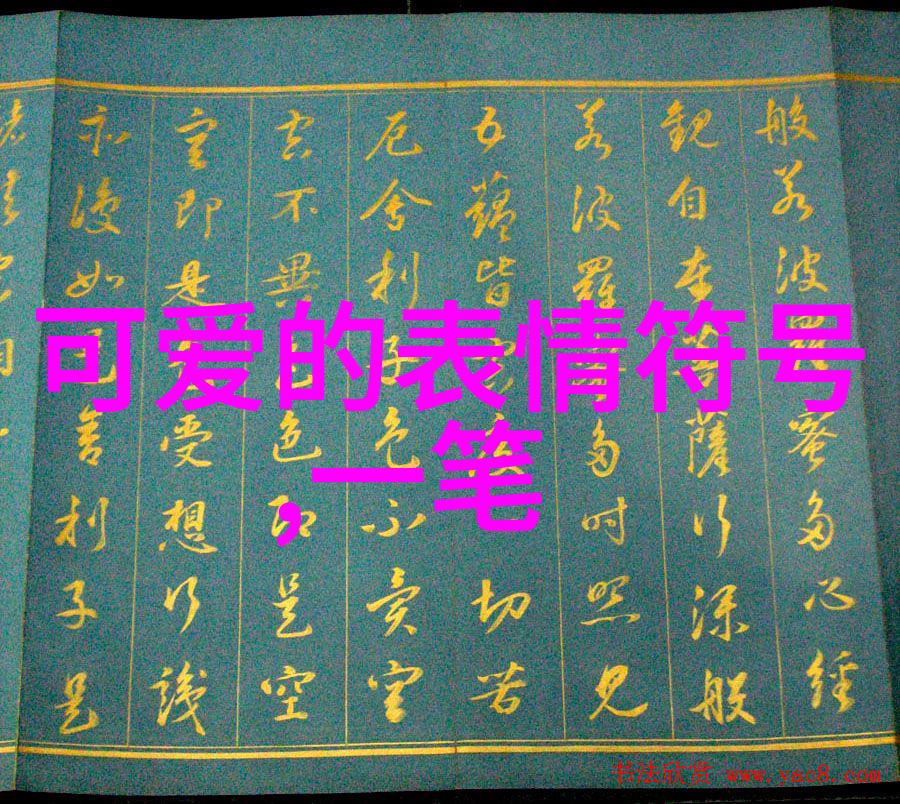 可爱的表情符号
,一笔
般若波羅蜜多心經
觀自在菩薩行深般
若波羅多時照見
五蘊皆空切苦
厄舍利子色不異空
空不異色色即是空
空即是受想行識
亦復如是舍利子是
书法欣赏 www.yac8.com